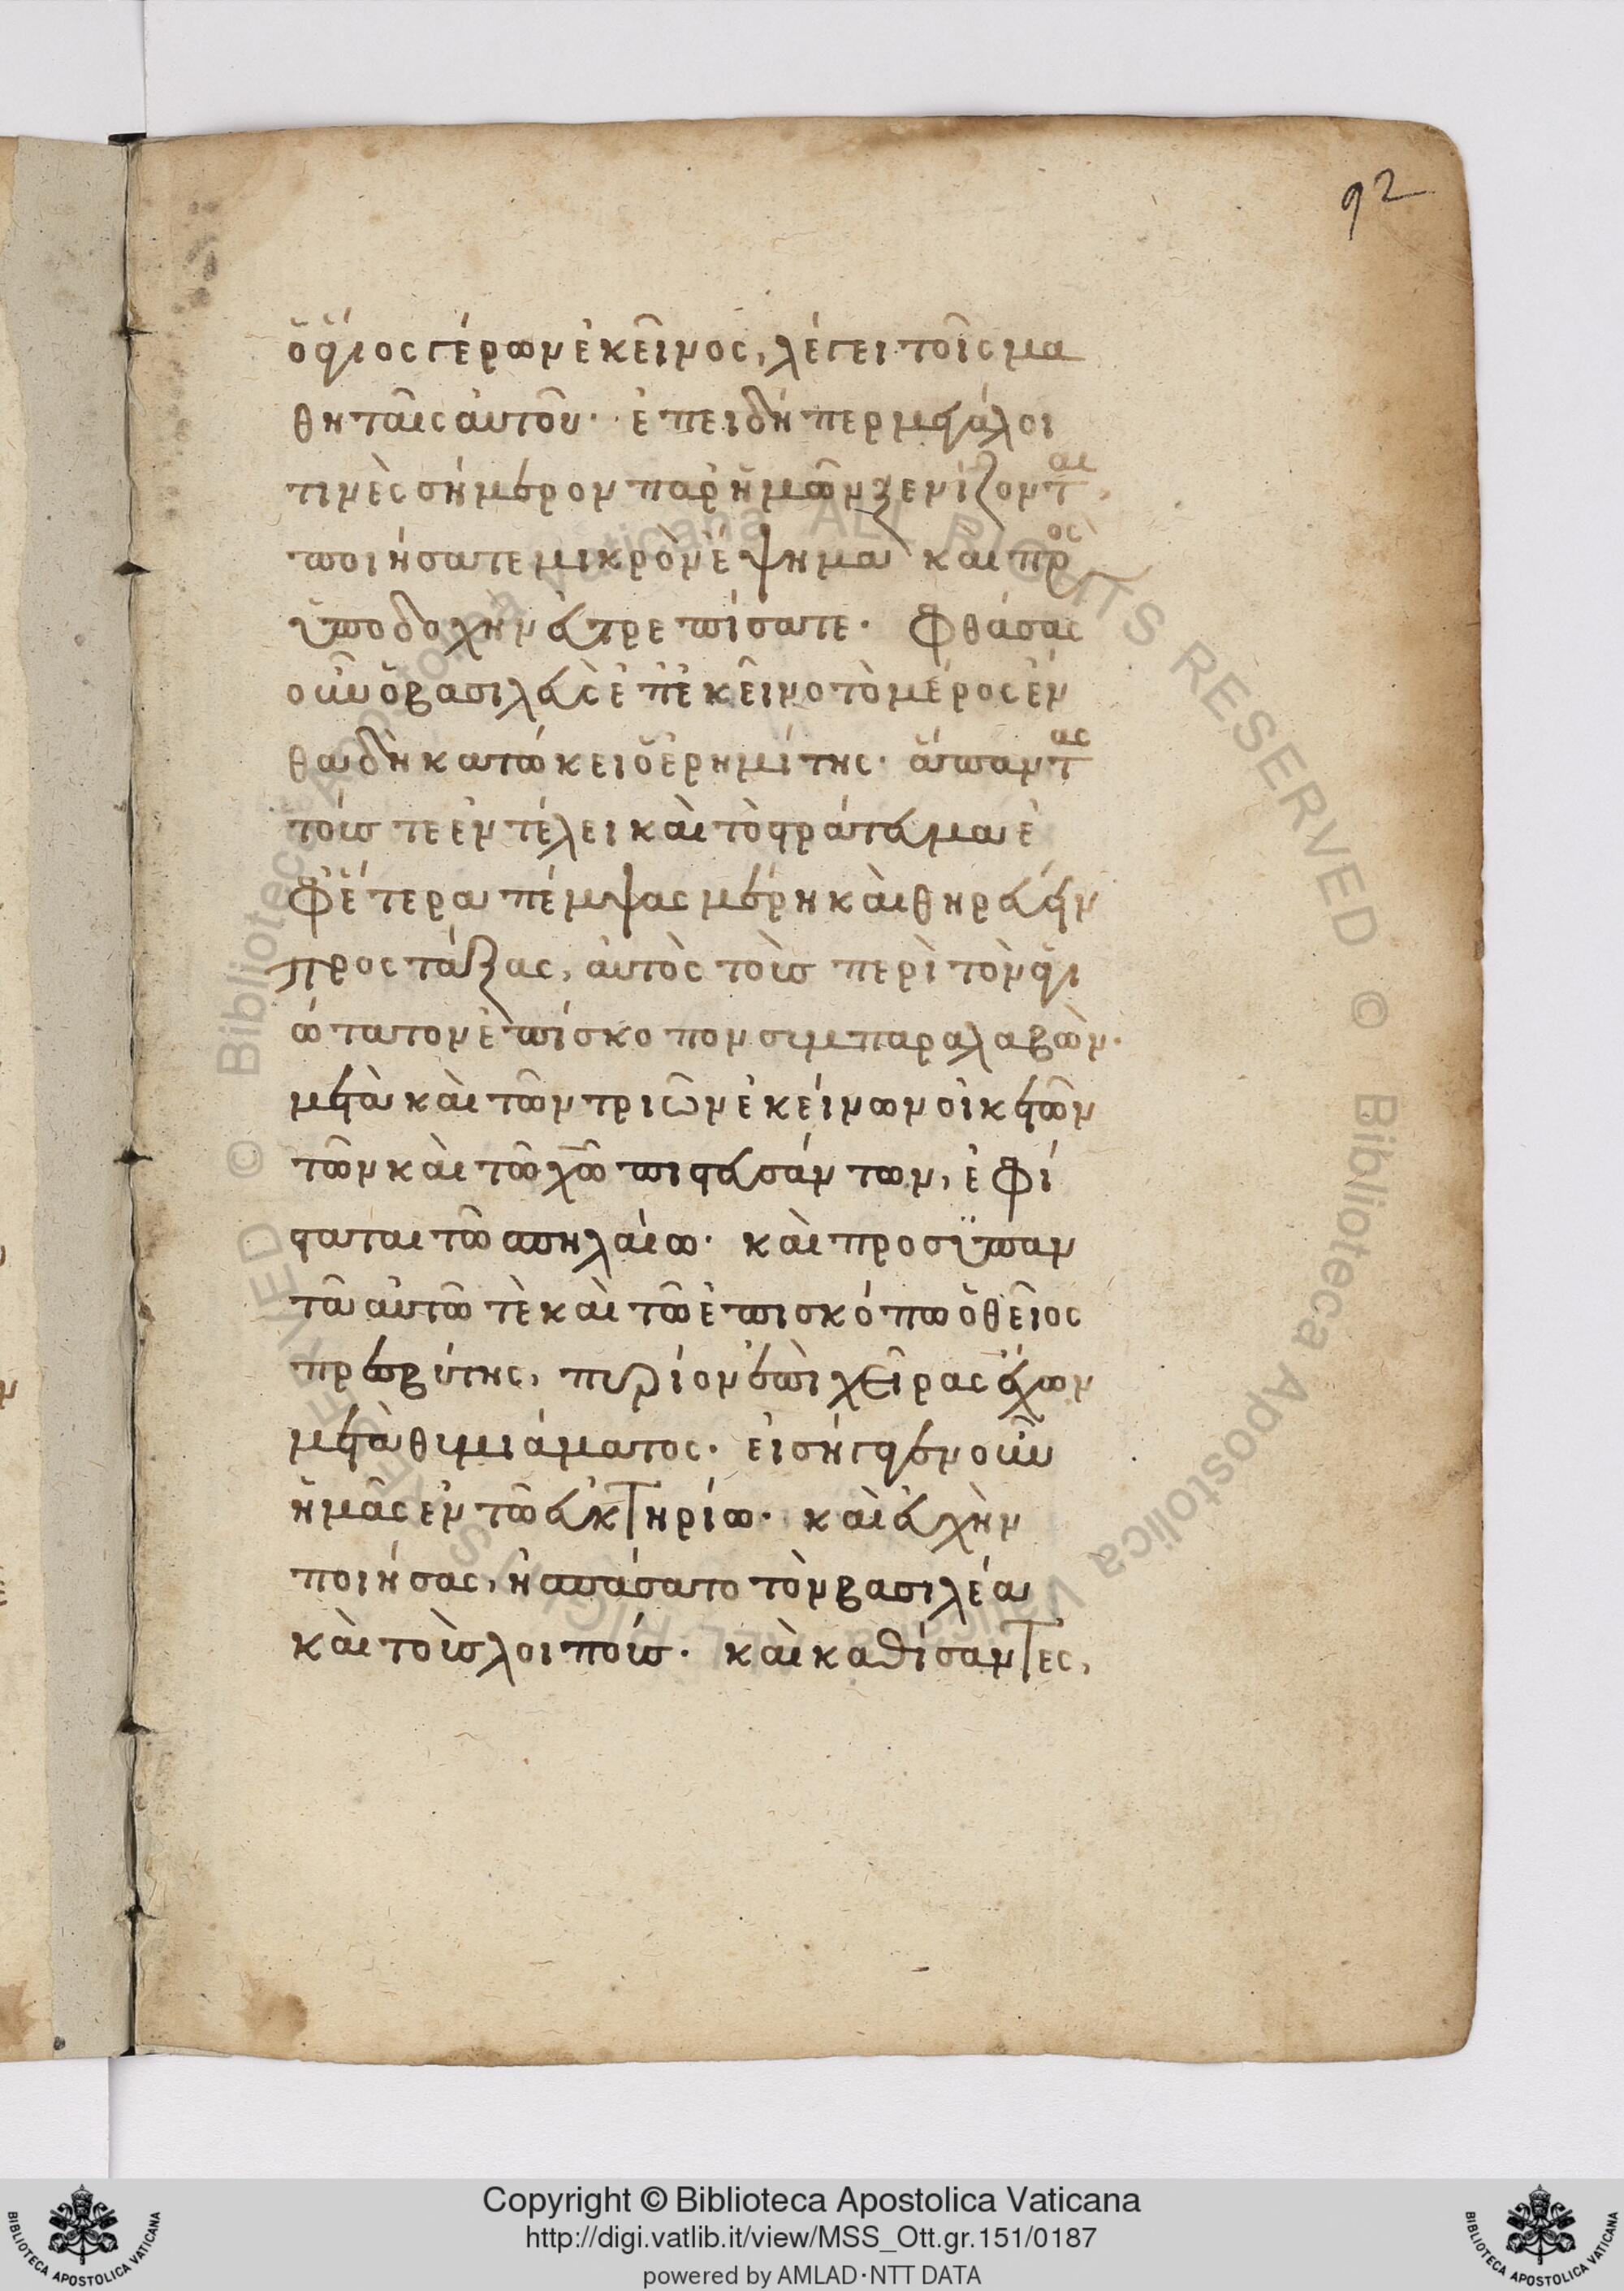 92
ὁ ἅγιος γέρων ἐκεῖνος, λέγει τοῖς μα
θηταῖς αὐτοῦ· ἐπειδήπερ μεγάλοι
τινὲς σήμερον παρ' ἡμῶν ξενίζονται,
ποιήσατε μικρὸν ἕψημα καὶ πρὸς
ὑποδοχὴν εὐτρεπίσατε. Φθάσας
οὖν ὁ βασιλεὺς ἐπ' ἐκεῖνο τὸ μέρος ἐν
θα δὴ κατώκει ὁ ἐρημίτης· ἅπαντας
τοὺς τε ἐν τέλει καὶ τὸ στράτευμα ἐ
φ' ἕτερα πέμψας μέρη καὶ θηρεύειν
προστάξας, αὐτὸς τοὺς περὶ τὸν ἁγι
ώτατον ἐπίσκοπον συμπαραλαβὼν·
μετὰ καὶ τῶν τριῶν ἐκείνων οἰκετῶν
τῶν καὶ τῶ χῶ πιστευσάντων, ἐφί
σταται τῶ σπηλαίω· καὶ προσϋπαν
τᾶ αὐτῶ τὲ καὶ τῶ ἐπισκόπω ὁ θεῖος
πρεσβύτης, πυρίον ἐπὶ χεῖρας ἔχων
μετὰ θυμιάματος· εἰσήγαγεν οὖν
ἡμᾶς ἐν τῶ εὐκτηρίω· καὶ εὐχὴν
ποιήσας, ἠσπάσατο τὸν βασιλέα
καὶ τοὺς λοιπούς· καὶ καθίσαντες,
Copyright © Biblioteca Apostolica Vaticana
http://digi.vatlib.it/view/MSS_Ott.gr.151/0187
powered by AMLAD·NTT DATA
BIBLIOTECA APOSTOLICA VATICANA
BIBLIOTECA APOSTOLICA VATICANA
© Biblioteca Apostolica Vaticana ALL RIGHTS RESERVED © Biblioteca Apostolica Vaticana ALL RIGHTS RESERVED